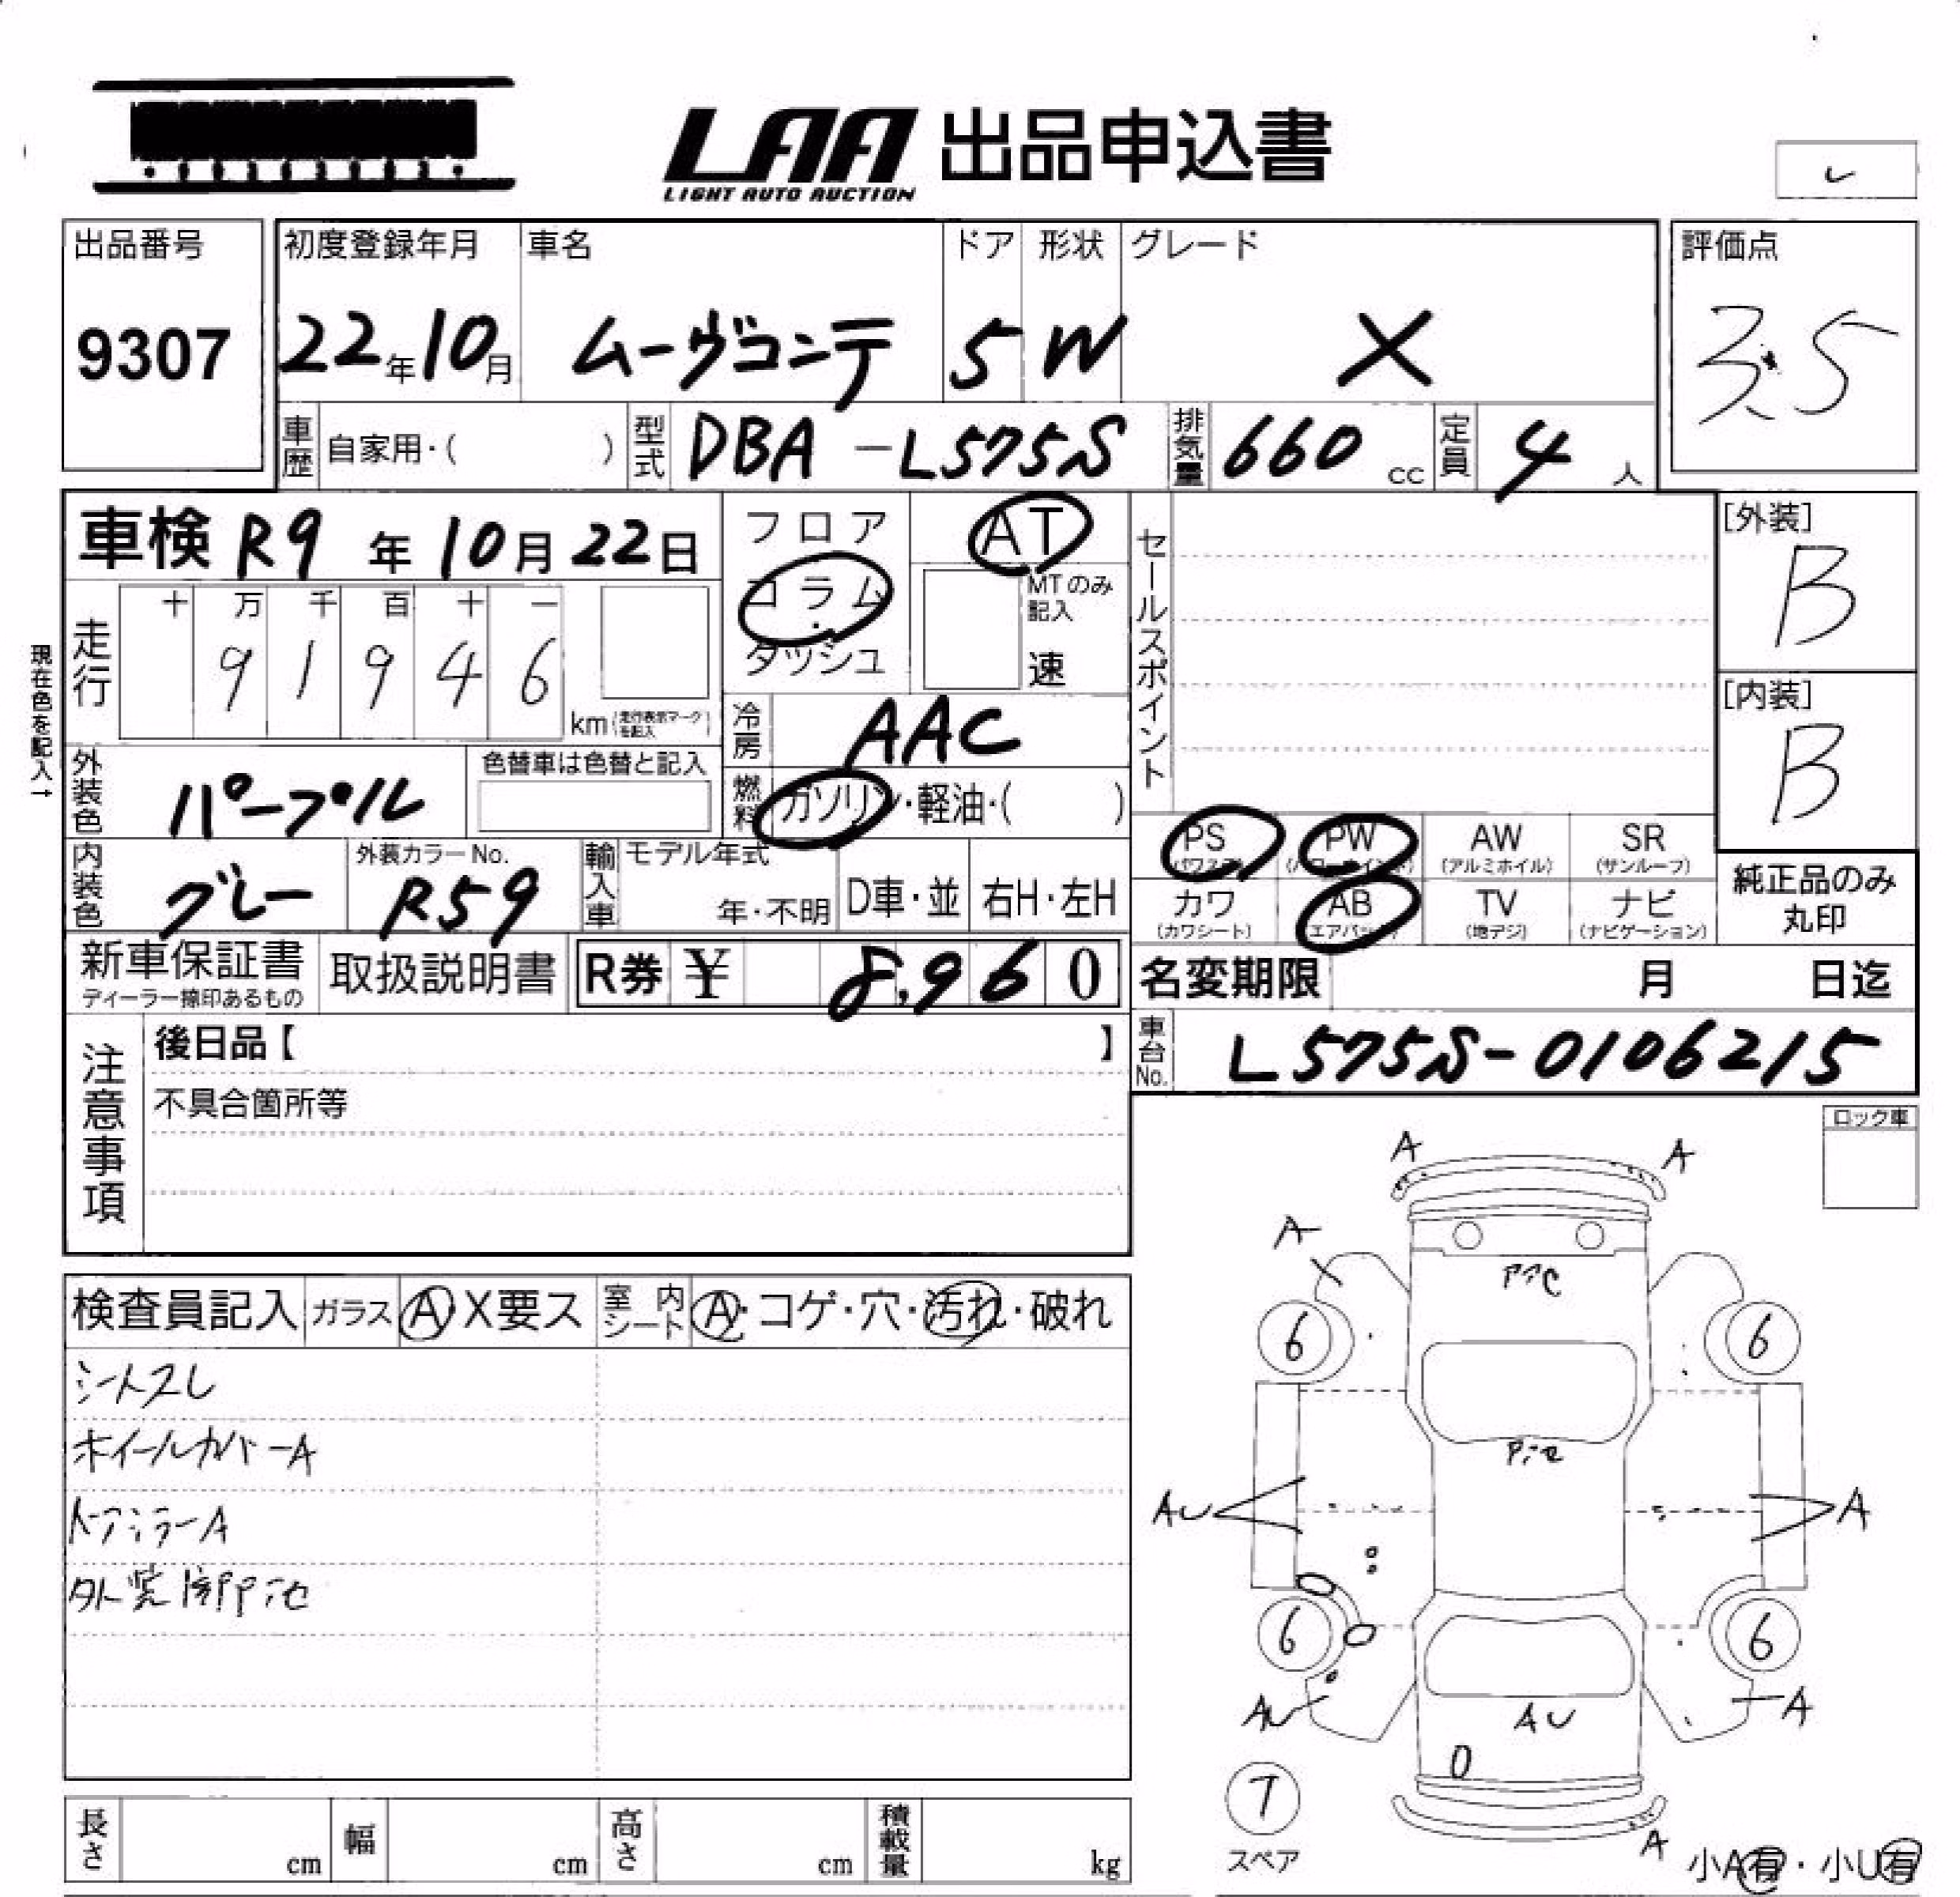 LAA 出品申込書
LIGHT AUTO AUCTION
出品番号 初度登録年月 車名 ドア 形状 グレード 評価点
9307 22年10月 ムーヴコンテ 5 W X 3.5
車歴 自家用・( ) 型式 DBA-L575S 排気量 660 cc 定員 4 人
車検 R9 年 10月 22日 フロア AT セールスポイント [外装]
コラム MTのみ記入 B
ダッシュ 速
現在色を記入→
走行 十 万 千 百 十 一
9 1 9 4 6 km (走行表示マークを記入)
冷房 AAC [内装]
B
外装色 パープル 色替車は色替と記入 燃料 ガソリン・軽油・( )
PS (パワステ) PW (パワーウインド) AW (アルミホイル) SR (サンルーフ)
内装色 グレー 外装カラーNo. R59 輸入車 モデル年式 年・不明 D車・並 右H・左H
カワ (カワシート) AB (エアバッグ) TV (地デジ) ナビ (ナビゲーション)
純正品のみ
丸印
新車保証書 取扱説明書 R券 ¥ 8,960 名変期限 月 日迄
ディーラー捺印あるもの
注意事項 後日品【 】 車台No. L575S-0106215
不具合箇所等
ロック車
検査員記入 ガラス A・X要ス 室内シート A・コゲ・穴・汚れ・破れ
シートスレ
ホイールカバーA
ドアミラーA
A A
A
アアC
6 6
AU A
6 6
AU AU A
T
スペア
A 小A有・小U有
長さ cm 幅 cm 高さ cm 積載量 kg